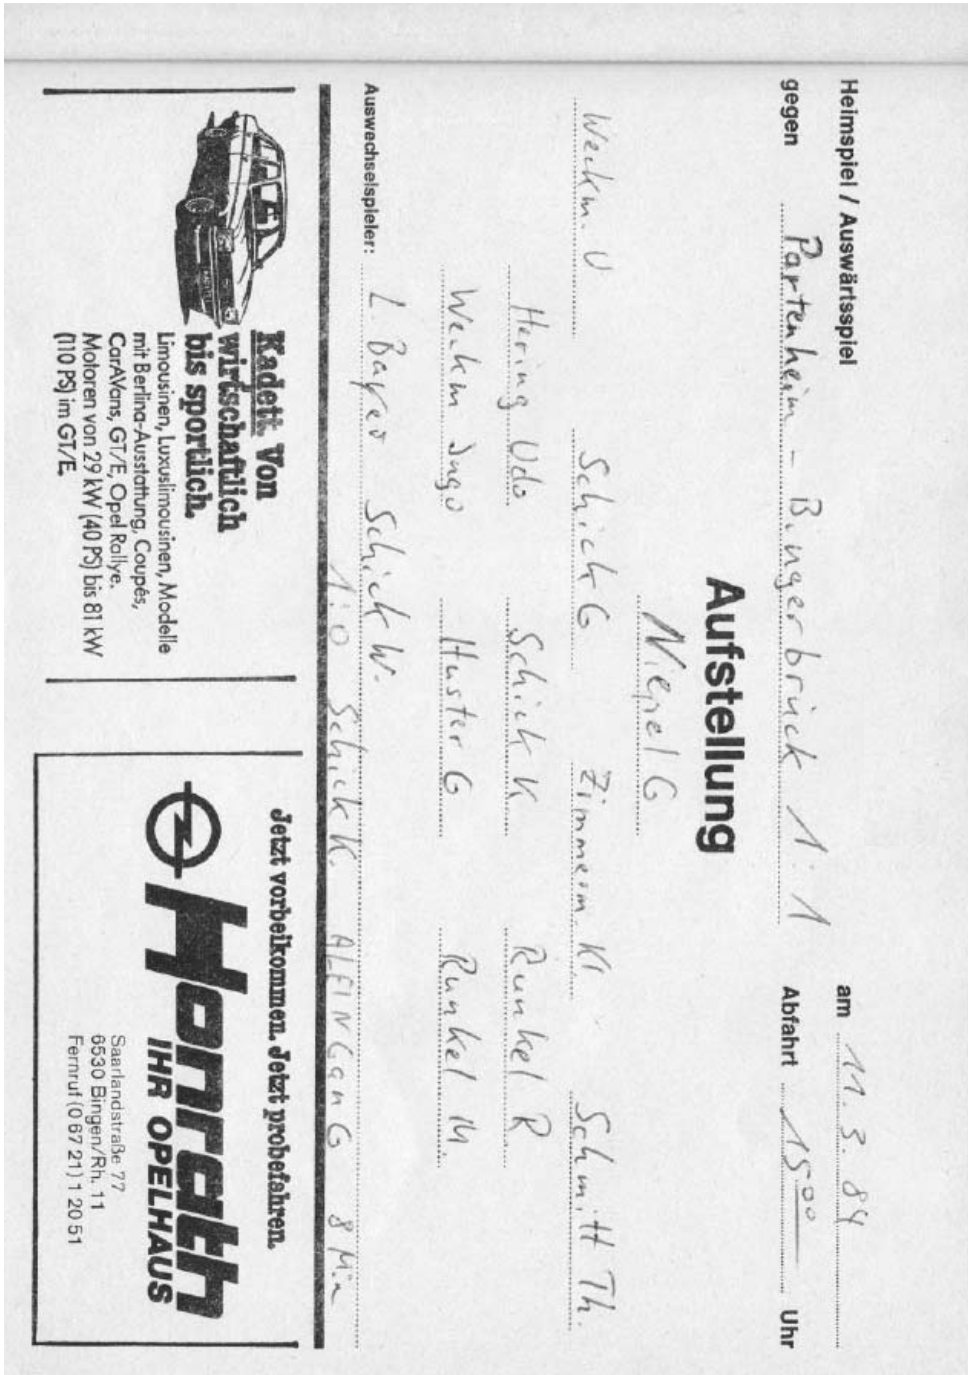 Heimspiel / Auswärtsspiel am 11.3.84
gegen Partenheim - Bingerbrück 1:1 Abfahrt 15⁰⁰ Uhr
Aufstellung
Niepel G
Weckm. U Schick G Zimmerm. Kl. Schmitt Th.
Hering Udo Schick K Runkel R
Weckm Ingo Huster G Runkel M.
Auswechselspieler: L. Bayer Schick W.
1:0 Schick K. ALEINGanG 8 Min
Kadett. Von
wirtschaftlich
bis sportlich.
Limousinen, Luxuslimousinen, Modelle
mit Berlina-Ausstattung, Coupés,
CarAVans, GT/E, Opel Rallye.
Motoren von 29 kW (40 PS) bis 81 kW
(110 PS) im GT/E.
Jetzt vorbeikommen. Jetzt probefahren.
Honrath
IHR OPELHAUS
Saarlandstraße 77
6530 Bingen/Rh. 11
Fernruf (0 67 21) 1 20 51